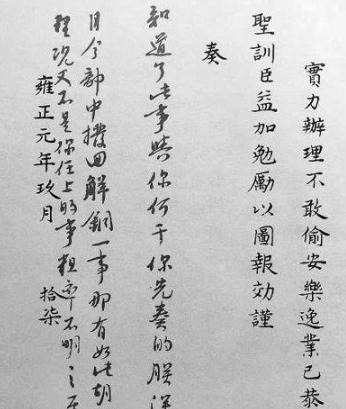 實力辦理不敢偷安樂逸業已恭
聖訓臣益加勉勵以圖報効謹
奏
知道了此事與你何干你先奏的朕深
目今部中撥回解銅一事那有如此胡
理况又不是你任上的事粗率不明之至
雍正元年玖月 拾柒